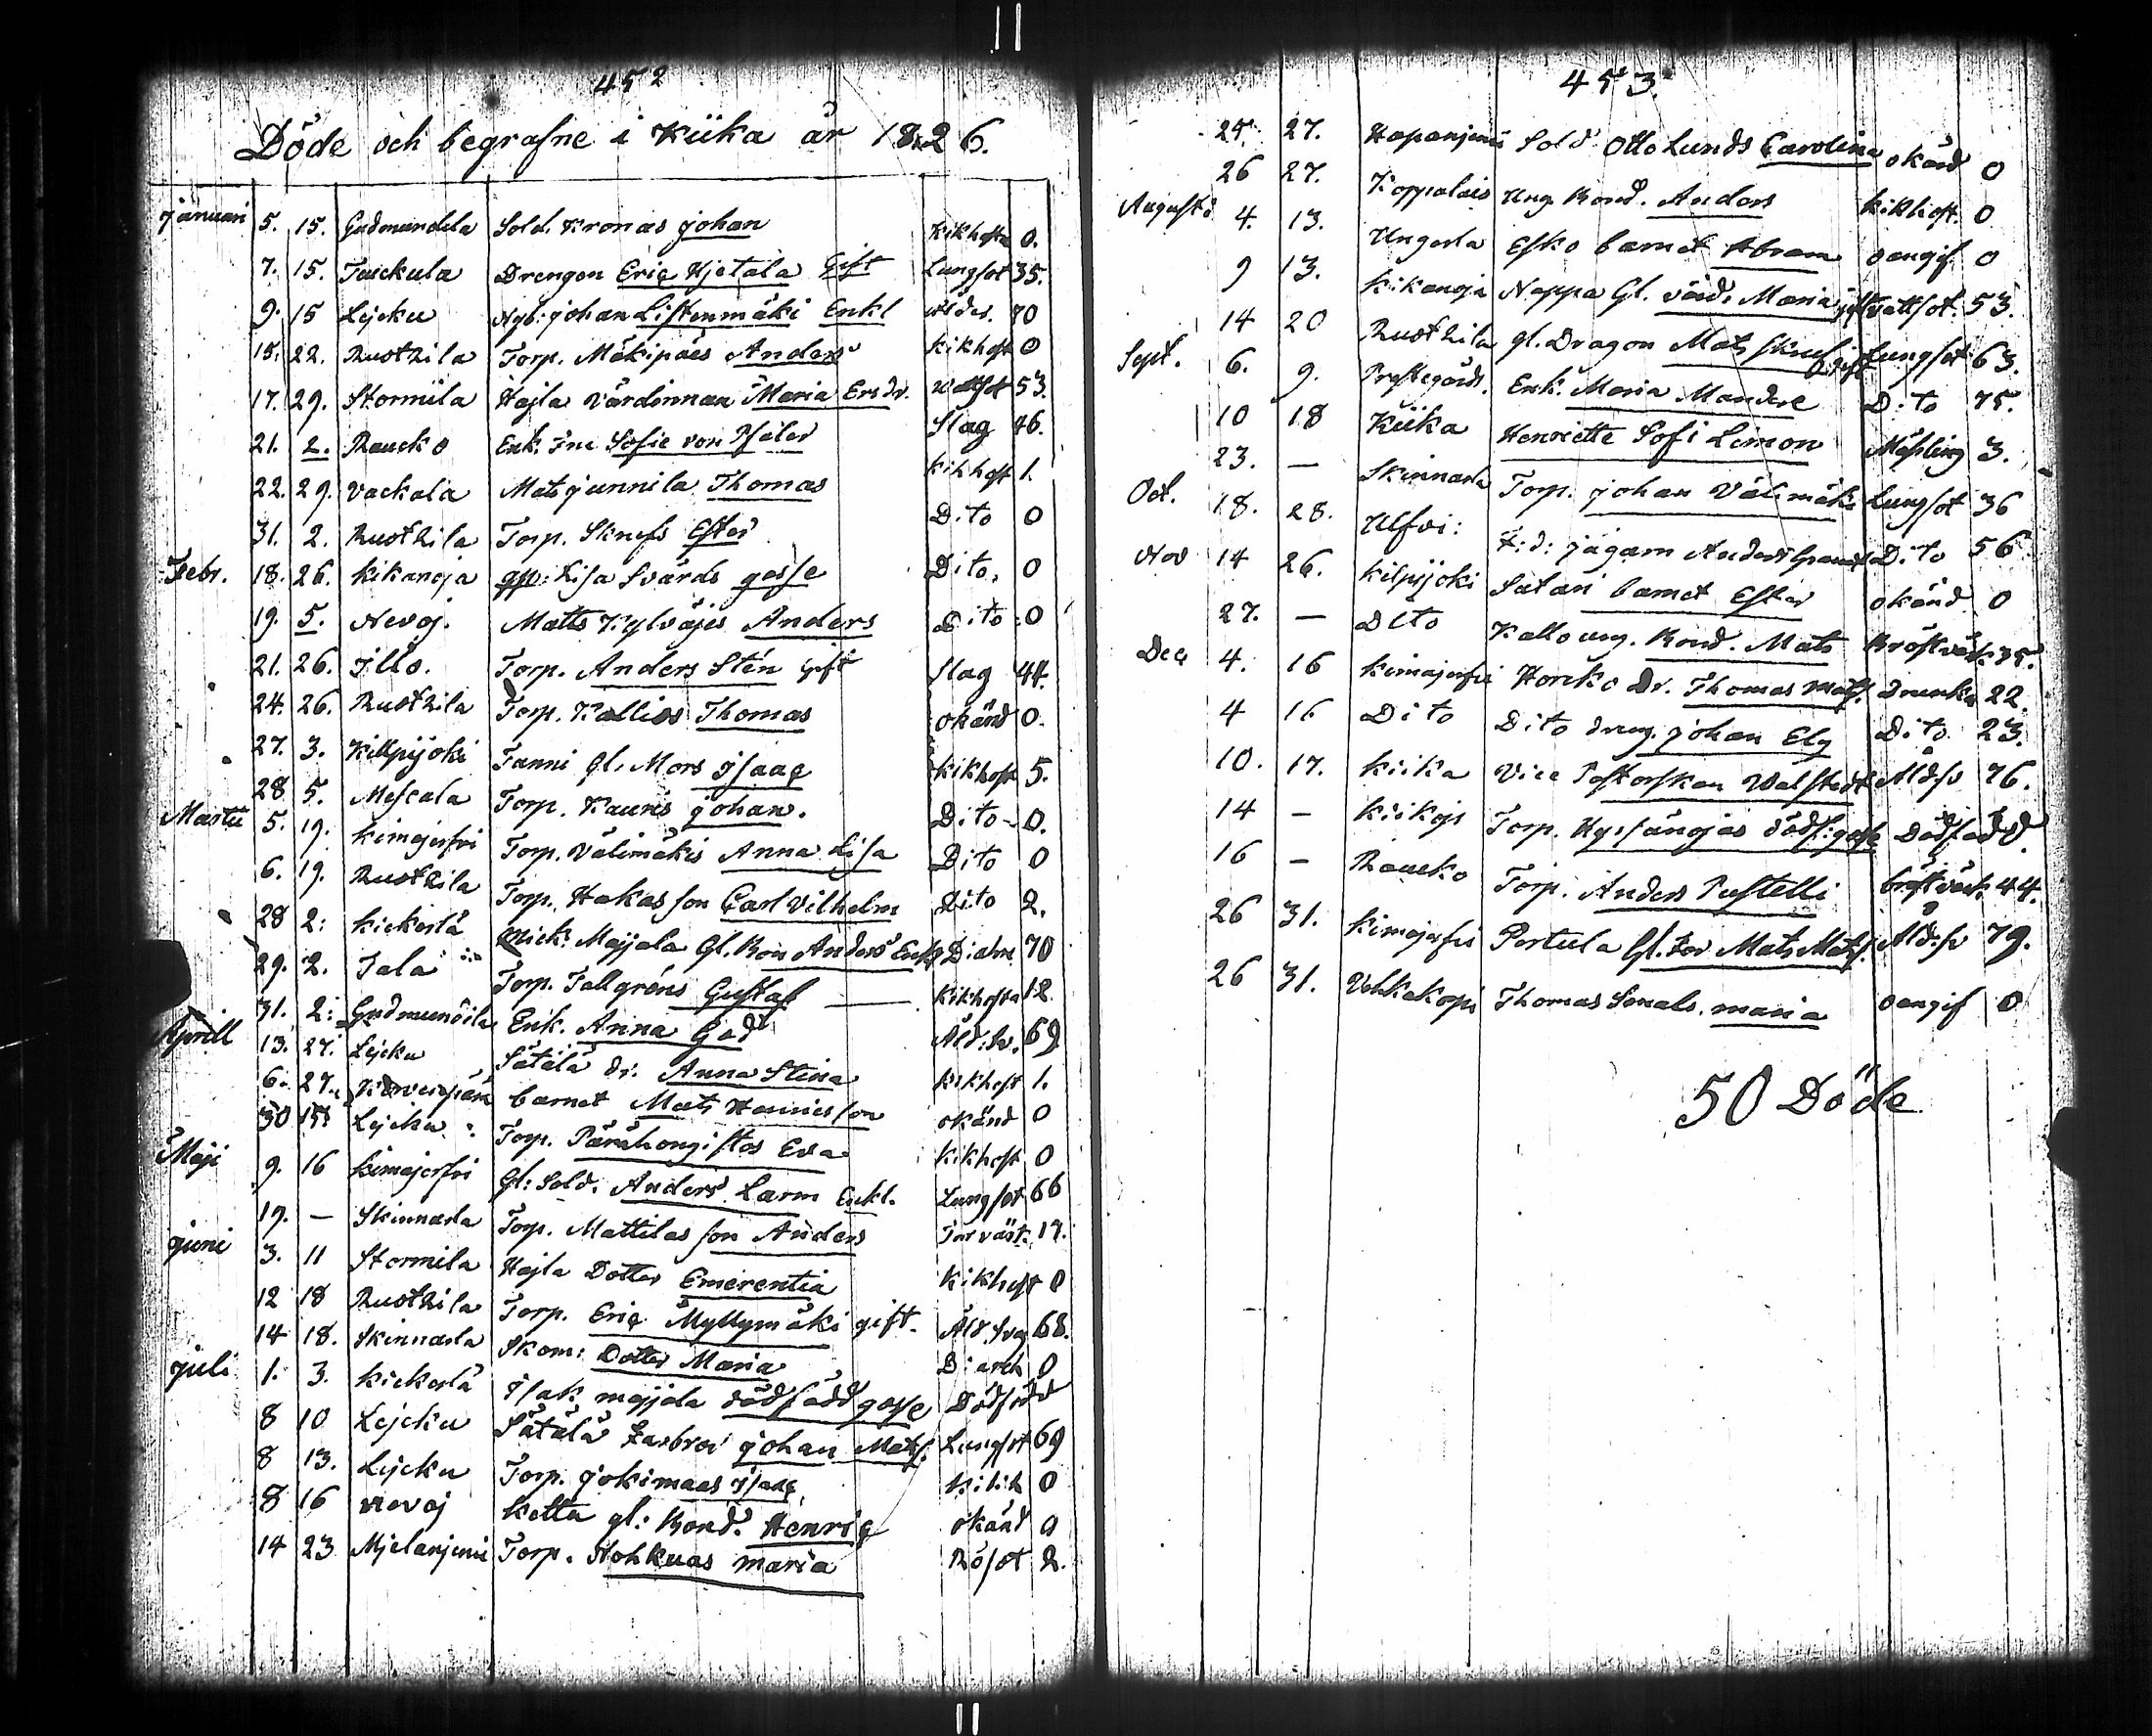 452
Döde och begrafne i Kiika år 1826.
Januari 5. 15. Gudmundila Sold. Kronas Johan Kikhosta 0.
7. 15. Juckula Drengen Eric Hjetala Gift Lungsot 35.
9. 15 Lejcku Nyb: Johan Listenmäki Enkl ålder. 70
15. 22. Rusthila Torp. Mäkipäes Anders Kikhost 0
17. 29. Stormila Hajla Värdinnan Maria Ersdr. wattsot 53.
21. 2. Raucko Enk. Fru Sofie von Pfaler Slag 46.
22. 29. Vackala Mats Junnila Thomas Kikhost 1.
31. 2. Rusthila Torp. Skrufs Ester Dito 0
Febr. 18. 26. Kikanoja Lisa Svärds gosse Dito, 0
19. 5. Nevoj. Matts Kylväjes Anders Dito. 0
21. 26. Illo. Torp. Anders Sten gift Slag 44.
24. 26. Rusthila Torp. Kallios Thomas okänd 0.
27. 3. Killpijoki Tanni Gl. Mors Isaac Kikhost 5.
28 5. Mescala Torp. Kauris Johan. Dito 0.
Martii 5. 19. Kimajerfvi Torp. Välimäkis Anna Lisa Dito 0
6. 19. Rusthila Torp. Hakas son Carl Vilhelm Dito 2.
28 2: Kickerlä Mick: Majjala Gl. Bon Anders Enkl Diahre 70
29. 2. Jala Torp. Tallgréns Gustaf Kikhosta 12.
31. 2: Gudmundila Enk. Anna God Åld:sv. 69
Aprill 13. 27. Lejcku Sätälä dr. Anna Stina Kikhost 1.
6. 27. barnet Mats Hannisson okänd 0
30 15 Lejcku Torp. Pärähongistos Eva Kikhost 0
Maji 9. 16 Kimajerfvi Gl: Sold. Anders Larm Enkl. Lungsot 66
19. — Skinnarla Torp. Mattilas son Anders Torvärk. 17.
Juni 3. 11 Stormila Hajla Dotter Emerentia Kikhost 0
12 18 Rusthila Torp. Eric Myllymäki gift. Åld. Svag 68.
14 18. Skinnarla Skom: Dotter Maria Diareh 0
Juli 1. 3. Kickerlä Isak majjala dödfödd gosse Dödfödd
8 10 Lejcku Sätälä Farbror Johan Mats. Lungsot 69
8 13. Lejcku Torp. Jokimaas Isaac Kikh 0
8 16 Nevoj Ketta gl: Bond. Henric okänd 0
14 23 Mjelanjemi Torp. Nohkuas maria Rösot 2.
453.
24. 27. Hapanjemi Sold Otto Lunds Carolina okänd 0
26 27. Koppalais Ung Bond. Anders kikhost. 0
Augusti 4. 13. Ungerla Esko barnet Abram oangif 0
9 13. Kikanoja Nappa Gl. värd. Maria gift vattsot. 53.
14 20 Rusthila gl. Dragon Mats Skruf gift Lungsot 63.
Sept. 6. 9. Prestegårds. Enk. Maria Mandere Dito 75.
10 18 Kiika Henriette Sofi Limon Mässling 3.
23. — Skinnarla Torp. Johan Välimäki Lungsot 36
Oct. 18. 28. Ulfvi: F:d: jägarn Anders Dito 56
Nov 14 26. Kilpijoki Satari barnet Ester okänd 0
27. — Dito Kallo ung. Bond. Mats Bröstvärk 35.
Dec 4. 16 Kimajerfvi Horcko Dr. Thomas Mats. Drunkn 22.
4 16 Dito Dito dreng. Johan Elg Dito 23.
10. 17. Kiika Vice Pastorskan Walstedt Åld:sv 76.
14 — Kiikojs Torp. Hyrsänojas dödf: gosse Dödfödd.
16 — Raucko Torp. Anders Pustelli bröstvärk 44.
26 31. Kimajerfvi Pertula Gl. Far Mats Mats. Åld:sv 79.
26 31. Vehkakorpi Thomas Smals. maria oangif 0
50 Döde